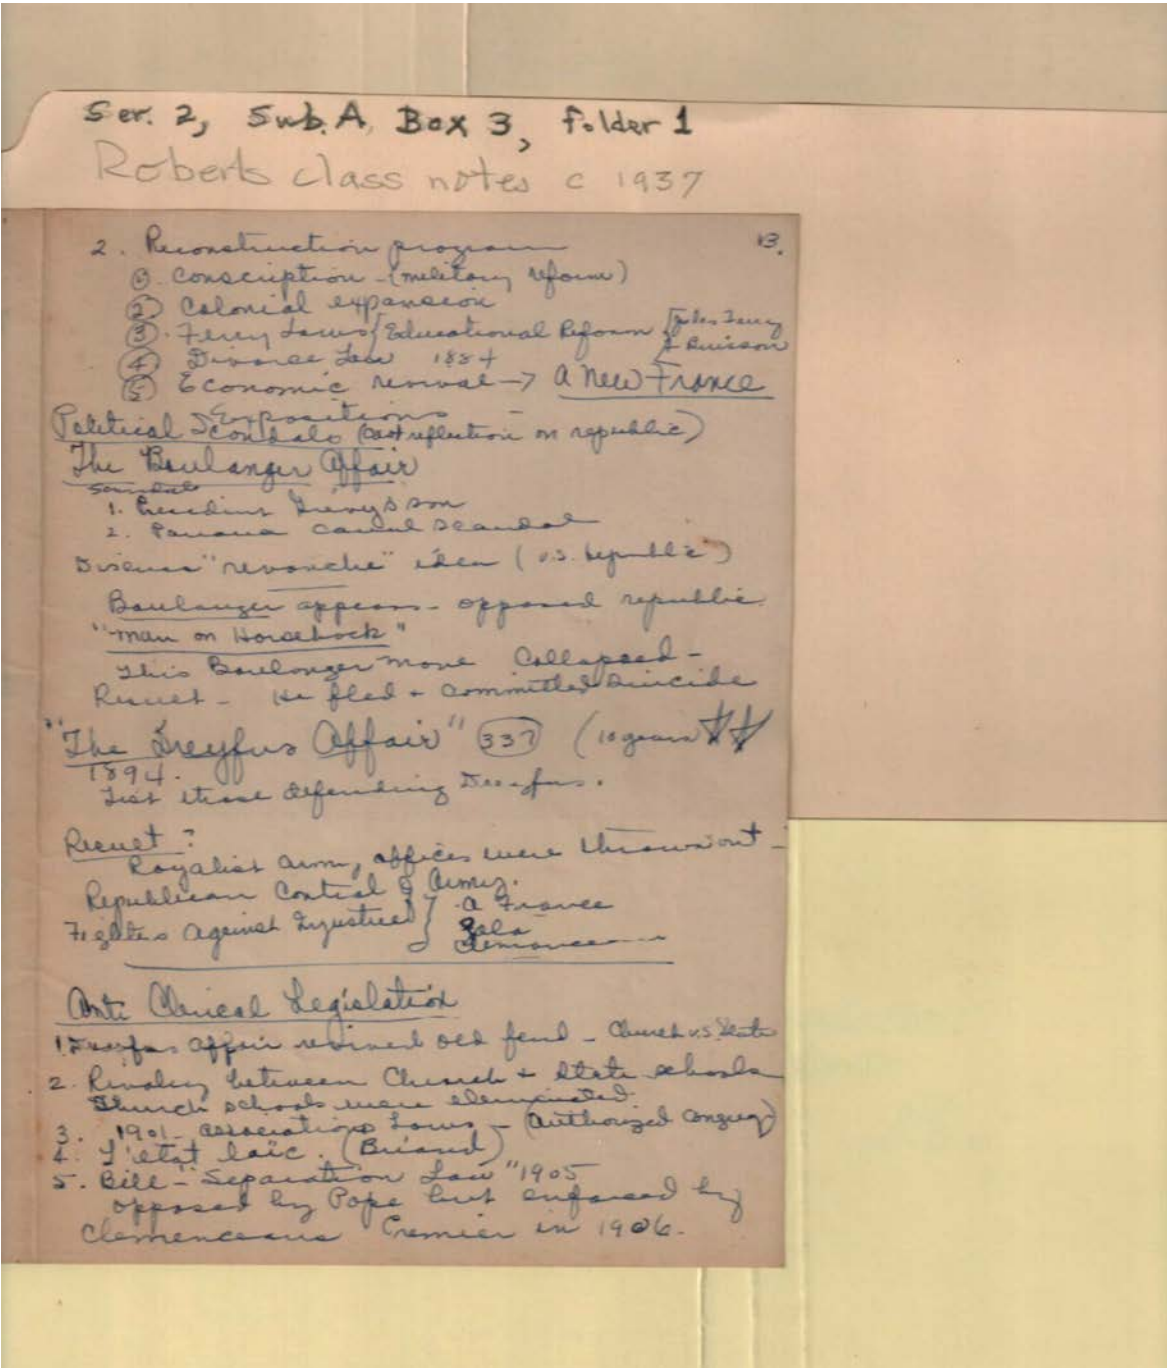 Ser. 2, Sub. A, Box 3, Folder 1
Roberts class notes c 1937
13.
2. Reconstruction program
① Conscription - (military reform)
② Colonial expansion
③ Ferry Laws { Educational Reform { Jules Ferry
& Buisson
④ Divorce Law 1884
⑤ Economic revival → A New France
Expositions
Political Scandals (cast reflection on republic)
The Boulanger Affair
Scandals
1. President Grévy's son
2. Panama Canal Scandal
Discuss "revanche" idea (v.s. republic)
Boulanger appears - opposed republic
"man on Horseback"
This Boulanger move collapsed -
Result - He fled + committed suicide
"The Dreyfus Affair" 337 (10 years
1894.
List those defending Dreyfus.
Result?
Royalist army offices were thrown out -
Republican Control of Army.
Fighters against Injustice } A France
Zola
Clemenceau
Anti Clerical Legislation
1. Dreyfus Affair revived old feud - Church v.s. State
2. Rivalry between Church + State schools
Church schools were eleminated
3. 1901 - Associations Laws - (Authorized congreg)
4. L'etat laïc. (Briand)
5. Bill - "Separation Law" 1905
opposed by Pope but enforced by
Clemenceau Premier in 1906.